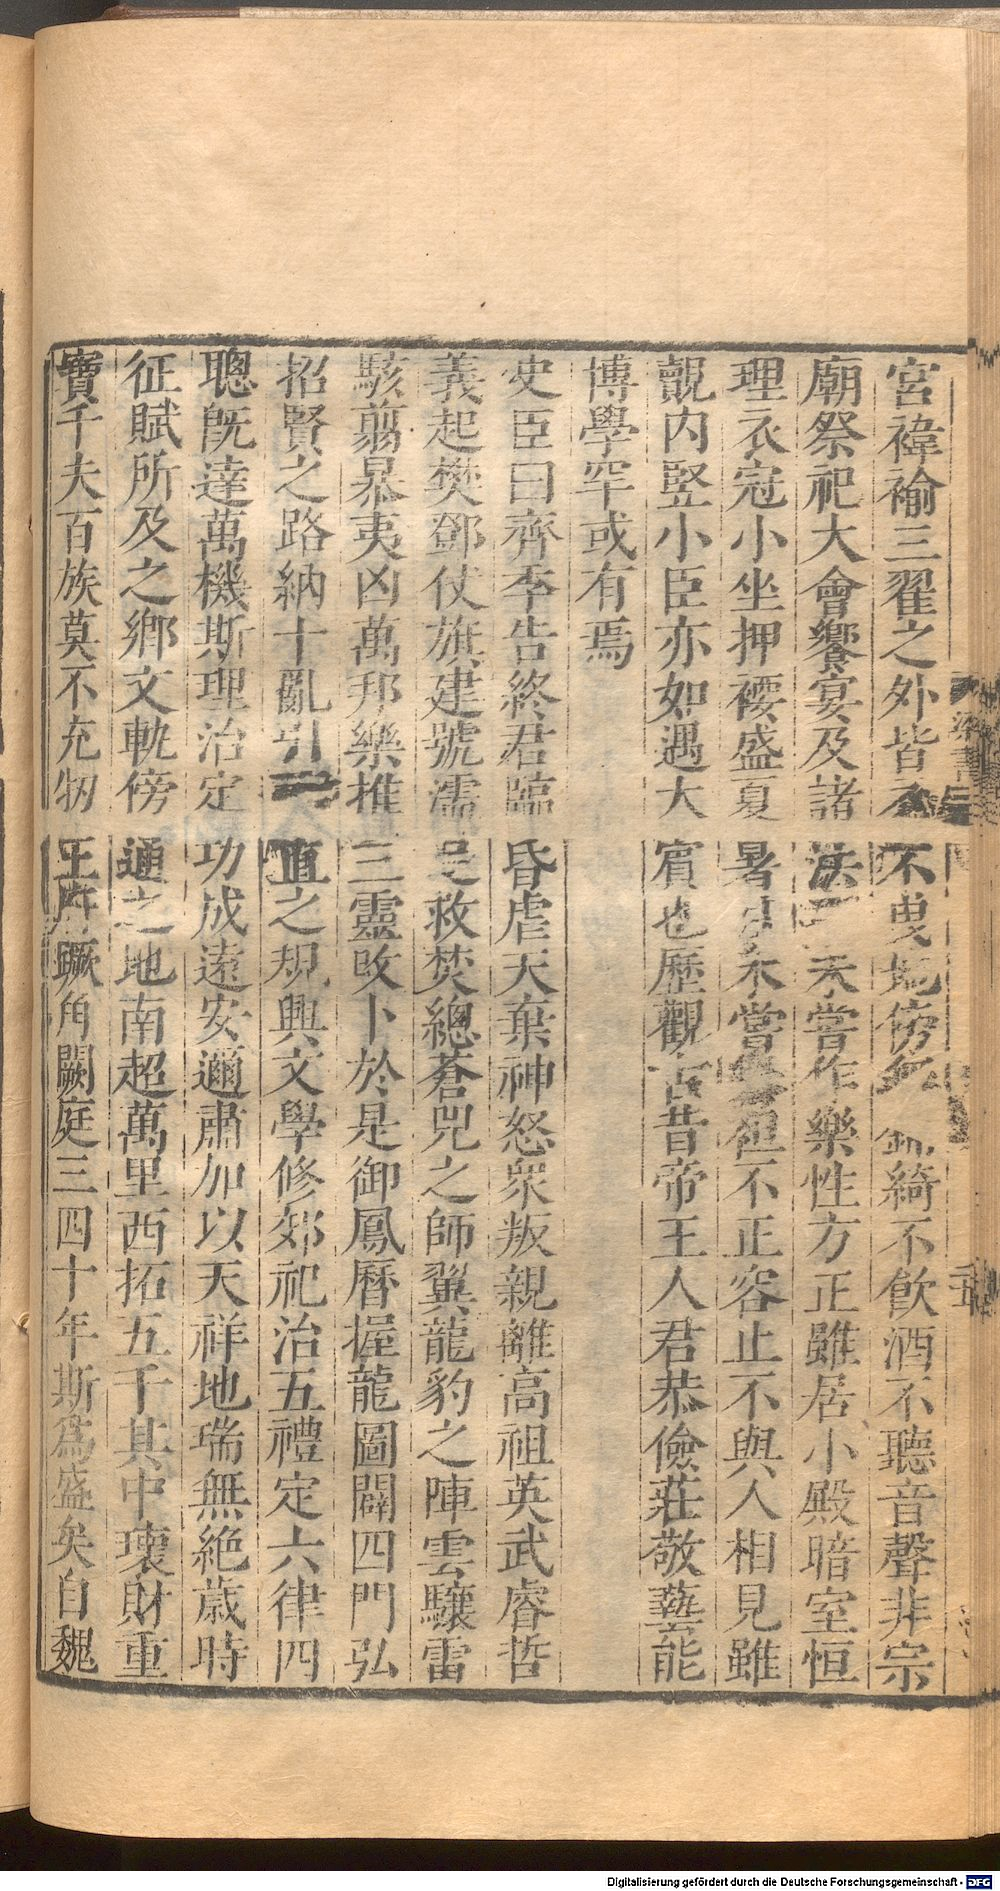 宮褘褕三翟之外皆不曳地傍無錦綺不飲酒不聽音聲非宗
廟祭祀大會饗宴及諸法事未嘗作樂性方正雖居小殿暗室恒
理衣冠小坐押𡝩盛夏暑月未嘗褰袒不正容止不與人相見雖
覿内竪小臣亦如遇大賓也歷觀古昔帝王人君恭儉莊敬藝能
博學罕或有焉
史臣曰齊季告終君臨昏虐天棄神怒衆叛親離高祖英武睿哲
義起樊鄧仗旗建號濡足救焚總蒼兕之師翼龍豹之陣雲驤雷
駭翦暴夷凶萬邦樂推三靈改卜於是御鳳曆握龍圖闢四門弘
招賢之路納十亂引直之規興文學修郊祀治五禮定六律四
聰既達萬機斯理治定功成遠安邇肅加以天祥地瑞無絶歲時
征賦所及之鄉文軌傍通之地南超萬里西拓五千其中瓌財重
寶千夫百族莫不充牣王府蹶角闕庭三四十年斯爲盛矣自魏
梁書三
Digitalisierung gefördert durch die Deutsche Forschungsgemeinschaft - DFG